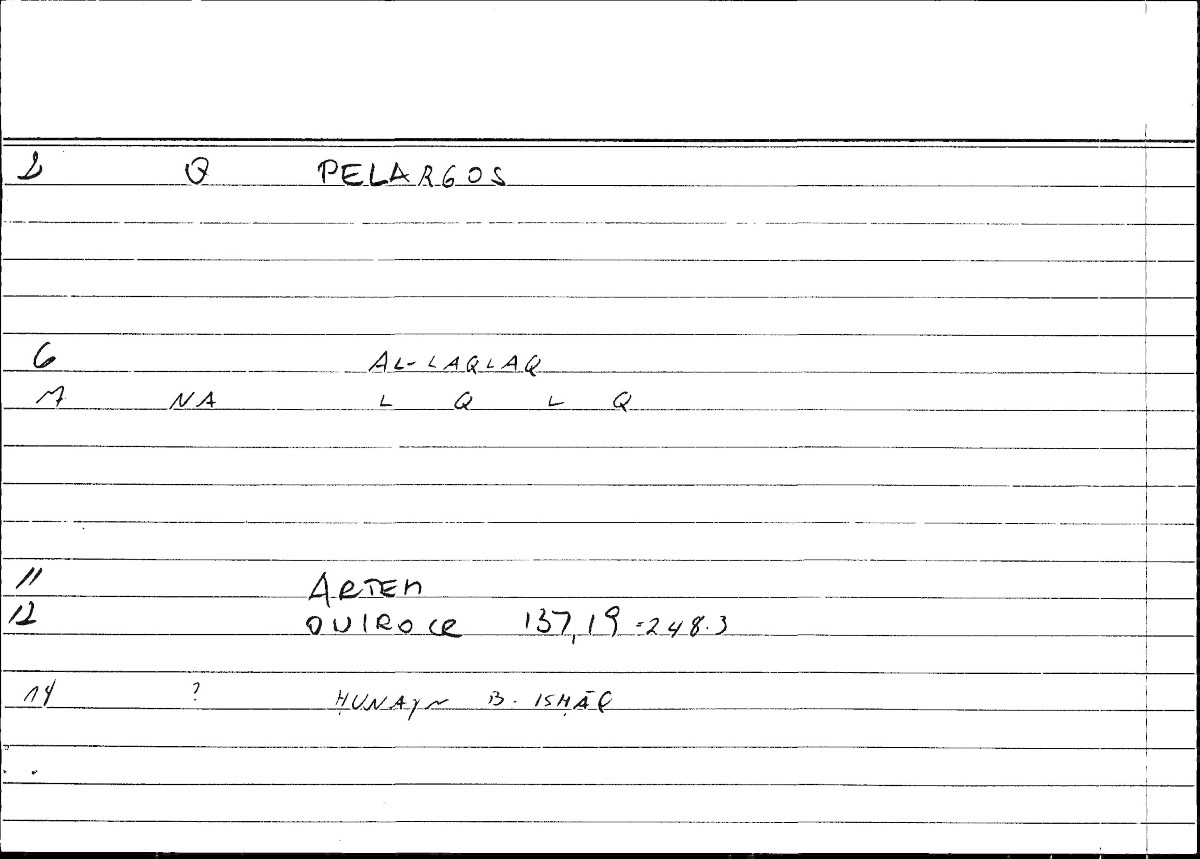 2 Q PELARGOS
6 AL-LAQLAQ
7 NA L Q L Q
11 ARTEM
12 OUIROCR 137,19 = 248.3
14 ? ḤUNAYN B. ISḤĀQ